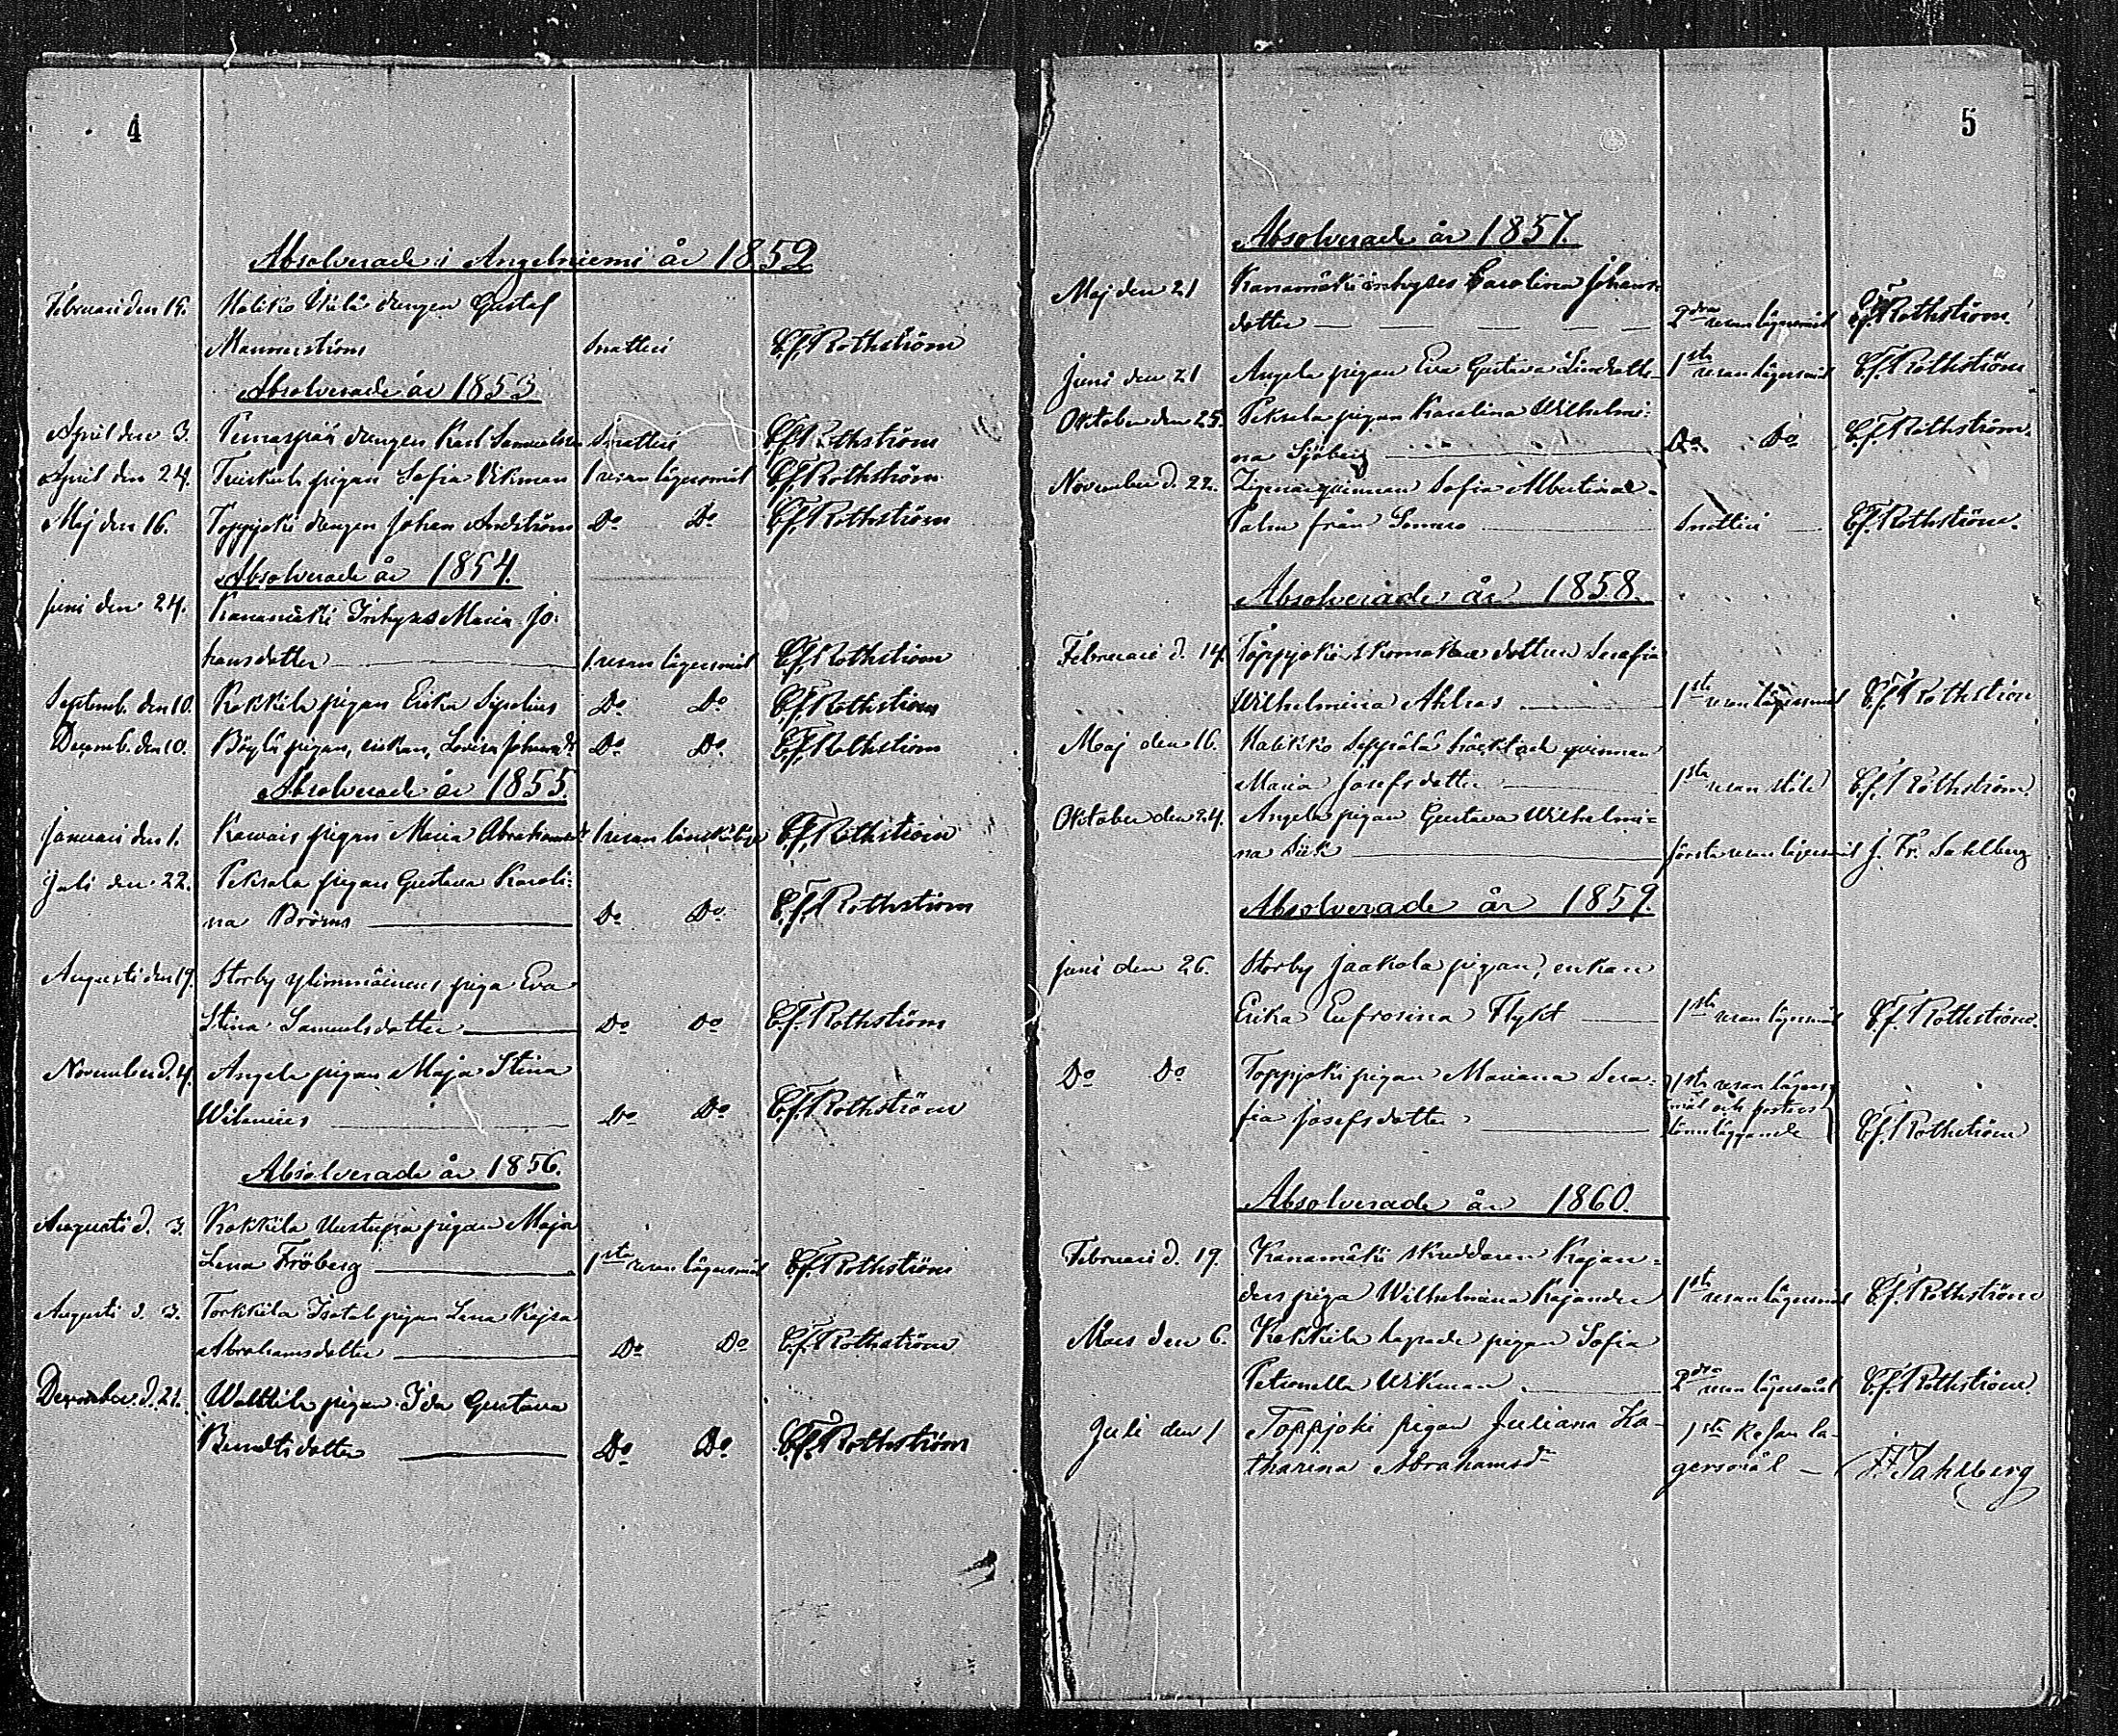 4
Absolverade i Angelniemi år 1852
Februari den 15. Haliko Vikilä drengen Gustaf
Mannerström Snatteri C. F. Rothström
Absolverade år 1853
April den 3. drengen Karl Samuelsson Snatteri C. F. Rothström
April den 24. Truiskula pigan Sofia Vikman 1 resan lägersmål C. F. Rothström
Maj den 16. Toppjoki drengen Johan Do Do C. F. Rothström
Absolverade år 1854.
Juni den 24. Kanamäki Inhyses Maria Jo-
hansdotter 1 resan lägersmål C. F. Rothström
Septemb. den 10. Kokkila pigan Erika Sipelius Do Do C. F. Rothström
Decemb. den 10. Böylä pigan, enkan, Lovisa Johansdr Do Do C. F. Rothström
Absolverade år 1855.
Januari den 1. pigan Maria Abrahamsdr 1 resan C. F. Rothström
Juli den 22. Peksala pigan Gustava Karoli-
na Do Do C. F. Rothström
Augusti den 19. Storby ylimmäinens piga Eva
Stina Samuelsdotter Do Do C. F. Rothström
November d. 4. Angela pigan Maja Stina
Wilenius Do Do C. F. Rothström
Absolverade år 1856.
Augusti d. 3. Kokkila Uustupa pigan Maja
Lena Fröberg 1sta resan lägersmål C. F. Rothström
Augusti d. 3. Torkkila Isotalo pigan Lena Kajsa
Abrahamsdotter Do Do C. F. Rothström
December d. 21. Walttila pigan Ida Gustava
Do Do C. F. Rothström
5
Absolverade år 1857.
Maj den 21 Kanamäki inhyses Carolina Johans-
dotter 2dra resan lägersmål C. F. Rothström
Juni den 21 Angela pigan Eva Gustava 1sta resan lägersmål C. F. Rothström
Oktober den 25. Peksala pigan Karolina Wilhelmi-
na Sjöberg Do Do C. F. Rothström
November d. 22. Zigenar qvinnan Sofia Albertina
Palm från Somero Snatteri C. F. Rothström.
Absolverade år 1858.
Februari d. 14. Toppjoki skomakare dottern Serafia
Wilhelmina Ahlros 1sta resan lägersmål C. F. Rothström
Maj den 16. Halikko häktade qvinnan
Maria Josefsdotter 1sta resan stöld C. F. Rothström.
Oktober den 24. Angela pigan Gustava Wilhelmi-
na första resan lägersmål J. Fr. Sahlberg
Absolverade år 1859.
Juni den 26. Storby Jaakola pigan, enkan
Erika Eufrosina Flykt 1sta resan lägersmål C. F. Rothström.
Do Do Toppjoki pigan Mariana Sera-
fia Josefsdotter 1sta resan lägers-
mål och fosters
lönnläggande C. F. Rothström
Absolverade år 1860.
Februari d. 19. Kanamäki skreddaren Kajan-
ders piga Wilhelmina Kajander 1sta resan lägersmål C. F. Rothström
Mars den 6. Kokkila pigan Sofia
Petronella Wikman 2dra resan lägersmål C. F. Rothström.
Juli den 1 Toppjoki pigan Juliana Ka-
tharina Abrahamsdr 1sta Resan lä-
gersmål J. F. Sahlberg